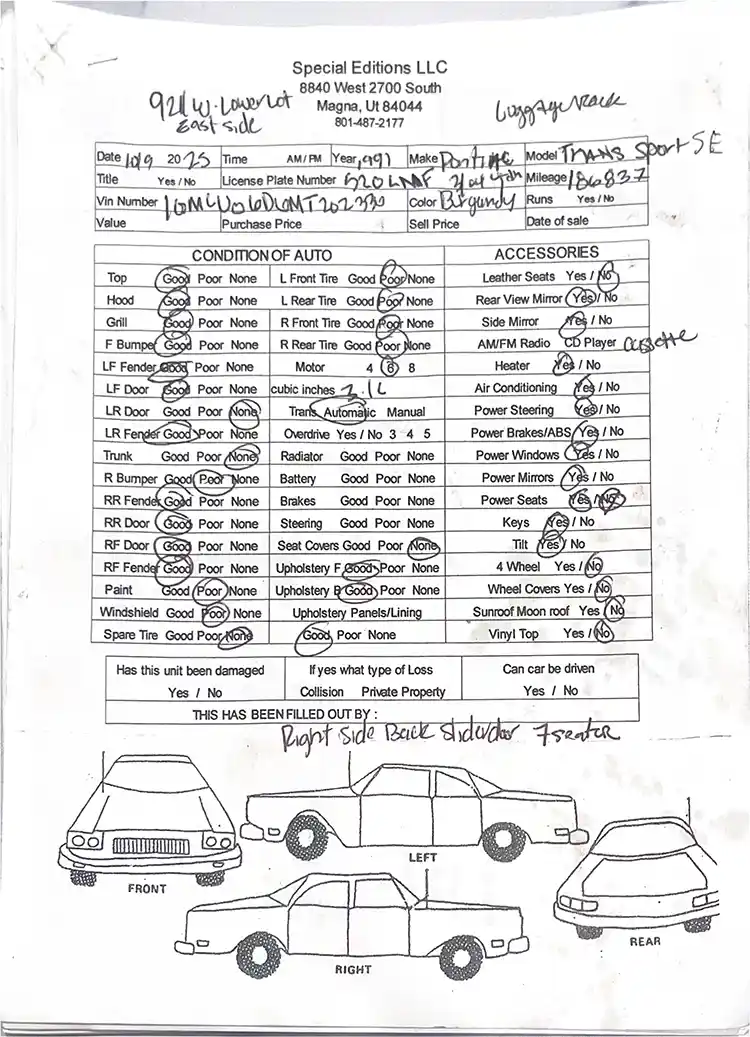 Special Editions LLC
8840 West 2700 South
Magna, Ut 84044
801-487-2177
921 W. Lower Lot
East side
Luggage rack
Date 10/9 2025 Time AM / PM Year 1991 Make Pontiac Model TRANS Sport SE
Title Yes / No License Plate Number Mileage 186837
Vin Number Color Burgundy Runs Yes / No
Value Purchase Price Sell Price Date of sale
CONDITION OF AUTO ACCESSORIES
Top Good Poor None L Front Tire Good Poor None Leather Seats Yes / No
Hood Good Poor None L Rear Tire Good Poor None Rear View Mirror Yes / No
Grill Good Poor None R Front Tire Good Poor None Side Mirror Yes / No
F Bumper Good Poor None R Rear Tire Good Poor None AM/FM Radio CD Player Cassette
LF Fender Good Poor None Motor 4 6 8 Heater Yes / No
LF Door Good Poor None cubic inches 3.1L Air Conditioning Yes / No
LR Door Good Poor None Trans Automatic Manual Power Steering Yes / No
LR Fender Good Poor None Overdrive Yes / No 3 4 5 Power Brakes/ABS Yes / No
Trunk Good Poor None Radiator Good Poor None Power Windows Yes / No
R Bumper Good Poor None Battery Good Poor None Power Mirrors Yes / No
RR Fender Good Poor None Brakes Good Poor None Power Seats Yes / No
RR Door Good Poor None Steering Good Poor None Keys Yes / No
RF Door Good Poor None Seat Covers Good Poor None Tilt Yes / No
RF Fender Good Poor None Upholstery F Good Poor None 4 Wheel Yes / No
Paint Good Poor None Upholstery B Good Poor None Wheel Covers Yes / No
Windshield Good Poor None Upholstery Panels/Lining Sunroof Moon roof Yes / No
Spare Tire Good Poor None Good Poor None Vinyl Top Yes / No
Has this unit been damaged If yes what type of Loss Can car be driven
Yes / No Collision Private Property Yes / No
THIS HAS BEEN FILLED OUT BY :
Right side Back Slider door 7 seater
FRONT
LEFT
RIGHT
REAR